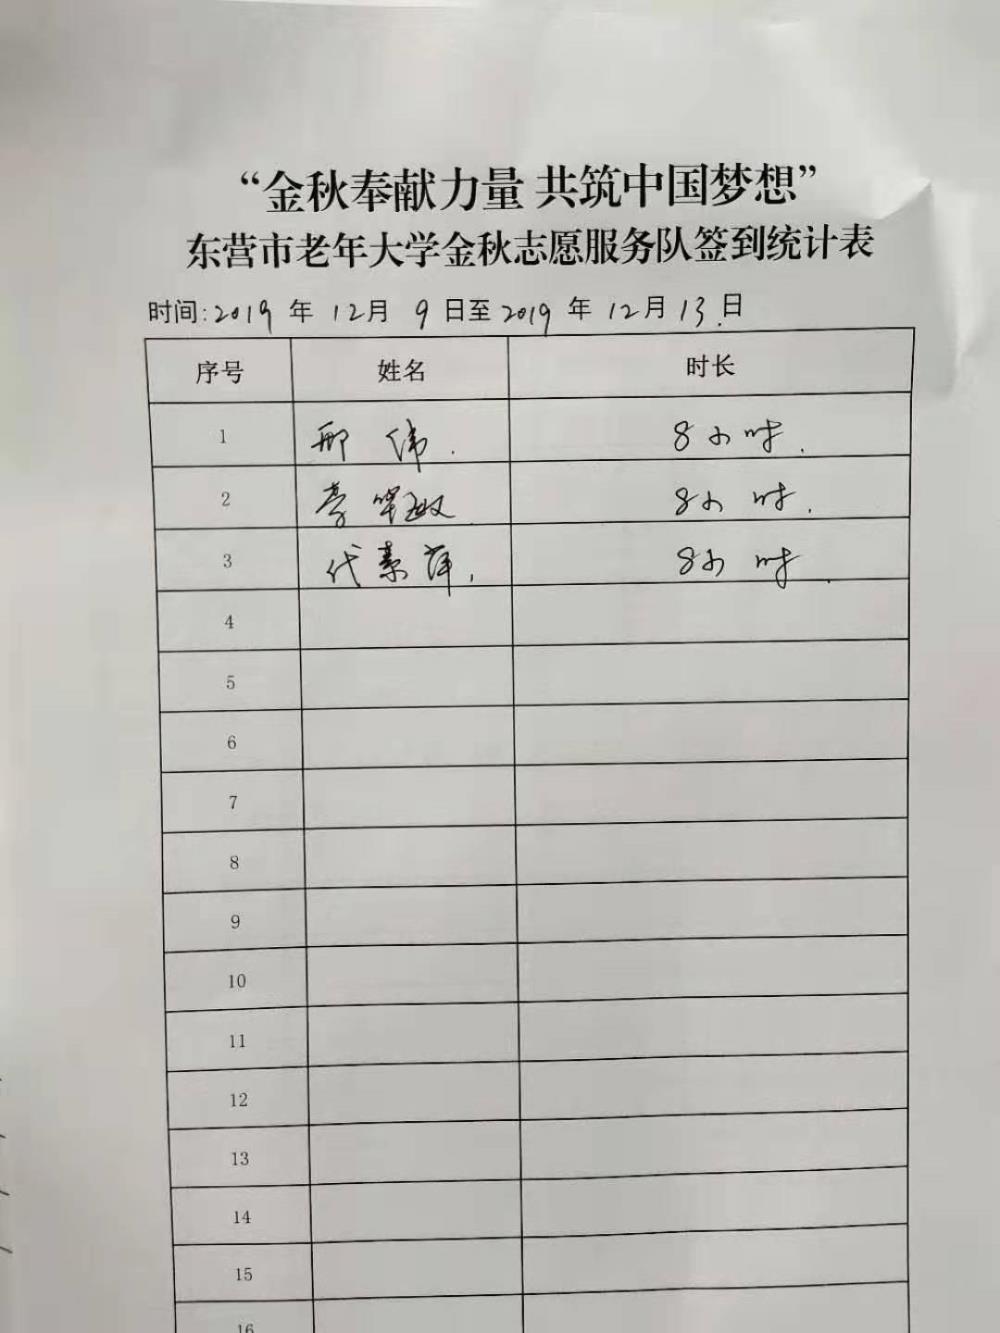 “金秋奉献力量 共筑中国梦想”
东营市老年大学金秋志愿服务队签到统计表
时间:2019 年 12月 9 日至 2019 年 12月 13.日
序号 姓名 时长
1 邢 伟. 8小时.
2 8小时.
3 代素萍. 8小时.
4
5
6
7
8
9
10
11
12
13
14
15
16